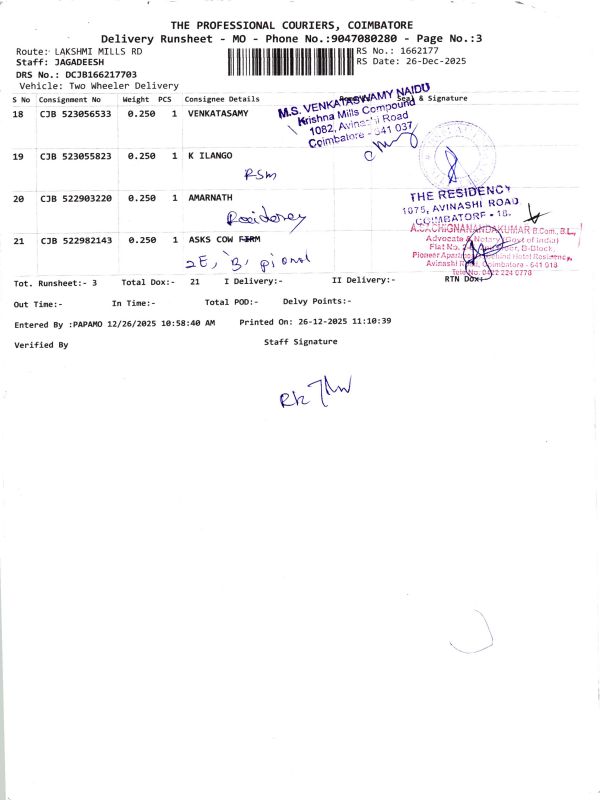 THE PROFESSIONAL COURIERS, COIMBATORE
Delivery Runsheet - MO - Phone No.:9047080280 - Page No.:3
Route: LAKSHMI MILLS RD
RS No.: 1662177
Staff: JAGADEESH
RS Date: 26-Dec-2025
DRS No.: DCJB166217703
Vehicle: Two Wheeler Delivery
S No Consignment No Weight PCS Consignee Details Seal & Signature
18 CJB 523056533 0.250 1 VENKATASAMY
M.S. VENKATASWAMY NAIDU
Krishna Mills Compound
1082, Avinashi Road
Coimbatore - 641 037
19 CJB 523055823 0.250 1 K ILANGO
RSM
20 CJB 522903220 0.250 1 AMARNATH
Residency
THE RESIDENCY
1075, AVINASHI ROAD
COIMBATORE - 18.
21 CJB 522982143 0.250 1 ASKS COW FIRM
2E, 'B',
A.SACHIGNANANDAKUMAR B.Com., B.L.,
Advocate & Notary (Govt of India)
Flat No. B-Block,
Pioneer Behind Hotel Residency,
Avinashi Road, Coimbatore - 641 018
Tele No: 0422 224 0778
Tot. Runsheet:- 3 Total Dox:- 21 I Delivery:- II Delivery:- RTN Dox:
Out Time:- In Time:- Total POD:- Delvy Points:-
Entered By :PAPAMO 12/26/2025 10:58:40 AM Printed On: 26-12-2025 11:10:39
Verified By Staff Signature